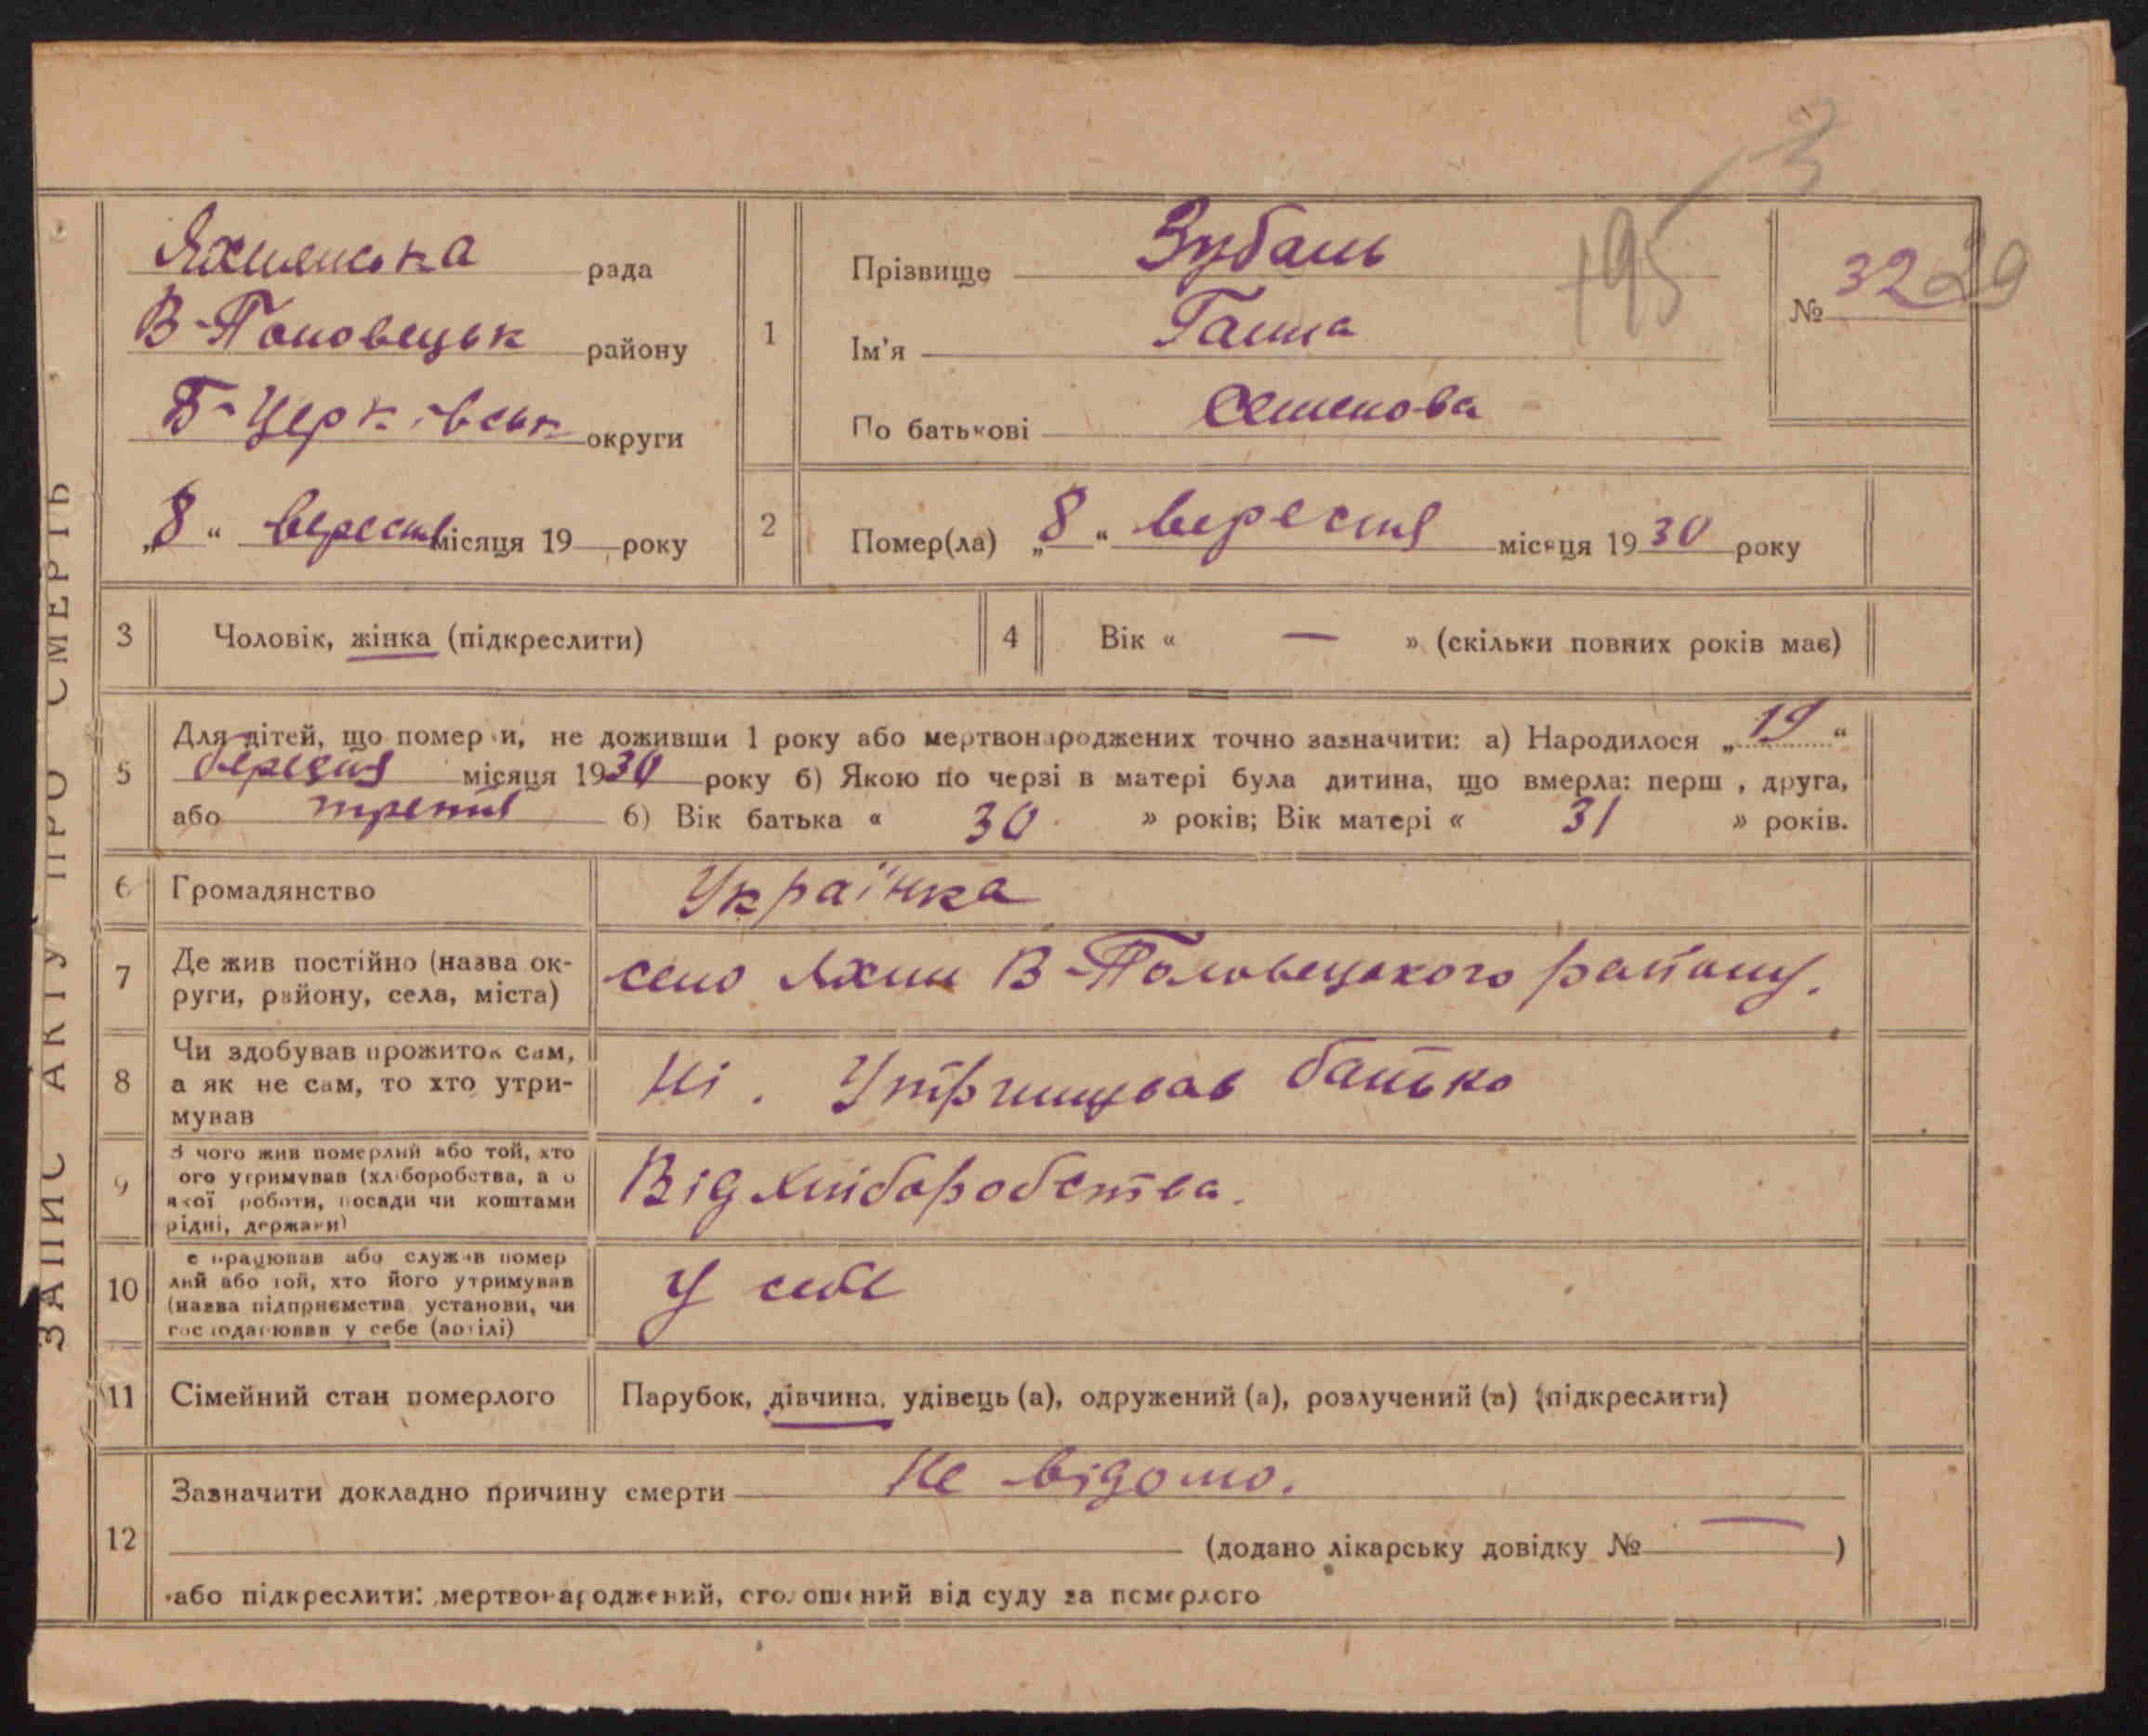 ЗАПИС АКТУ ПРО СМЕРТЬ
3
195
Яхнянська рада
В-Половецьк району
Б-Церківськ округи
„8“ вересня місяця 19 року
1
Прізвище Зубань
Ім'я Ганна
По батькові Семенова
№ 32 29
2
Помер(ла) „8“ вересня місяця 1930 року
3 Чоловік, жінка (підкреслити)
4 Вік « — » (скільки повних років має)
5
Для дітей, що померли, не доживши 1 року або мертвонароджених точно зазначити: а) Народилося „19“
березня місяця 1930 року б) Якою по черзі в матері була дитина, що вмерла: перш , друга,
або третя б) Вік батька « 30 » років; Вік матері « 31 » років.
6 Громадянство Українка
7 Де жив постійно (назва ок-
руги, району, села, міста)
село Яхни В-Половецького району.
8 Чи здобував прожиток сам,
а як не сам, то хто утри-
мував
Ні. Утримував батько
9 З чого жив померлий або той, хто
ого утримував (хліборобства, а о
якої роботи, посади чи коштами
рідні, держави)
Від хліборобства.
10 е працював або служив помер
лий або той, хто його утримував
(назва підприємства установи, чи
господарював у себе (артілі)
У себе
11 Сімейний стан померлого Парубок, дівчина, удівець (а), одружений (а), розлучений (а) (підкреслити)
12
Зазначити докладно причину смерти Не відомо.
(додано лікарську довідку № — )
або підкреслити: мертвонароджений, оголошений від суду за померлого